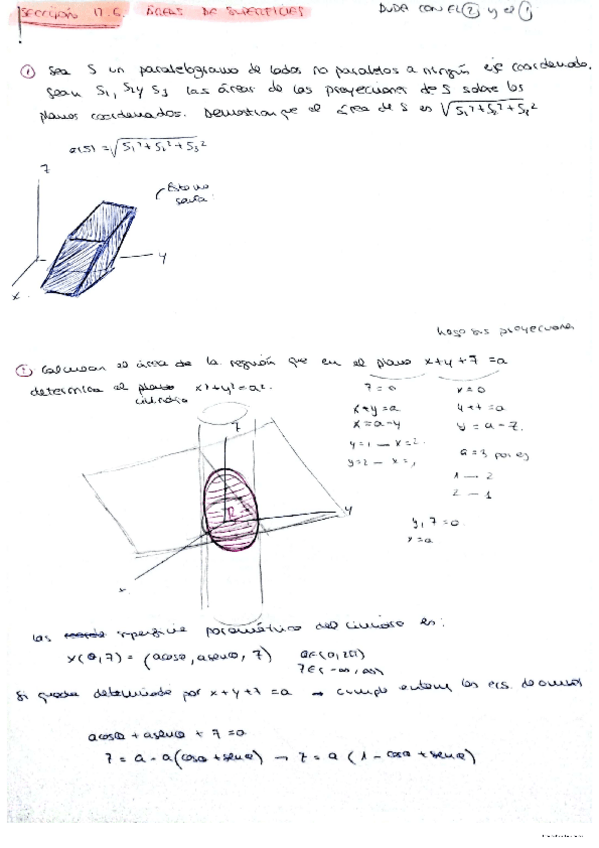 SECCIÓN 17.6. ÁREAS DE SUPERFICIES
DUDA CON EL ② y el ①
① Sea S un paralelogramo de lados no paralelos a ningún eje coordenado.
Sean S₁, S₂ y S₃ las áreas de las proyecciones de S sobre los
planos coordenados. Demostrar que el área de S es √S₁²+S₂²+S₃²
a(S) = √S₁²+S₂²+S₃²
z
Esto no
sería
y
x
hago sus proyecciones
Calcular el área de la región que en el plano x+y+z=a
determina el plano x²+y²=a².
cilindro
z=0
x+y=a
x=a-y
y=1 — x=2
y=2 — x=1
x=0
y+z=a
y=a-z
a=3 por ej
1 — 2
2 — 1
y, z=0
x=a
z
R
y
x
las superficie paramétrica del cilindro es:
X(θ,z) = (a cosθ, a senθ, z) θ∈(0,2π)
z∈(-∞,∞)
Si queda determinada por x+y+z=a → cumple
a cosθ + a senθ + z = a
z = a - a(cosθ + senθ) → z = a (1 - cosθ + senθ)